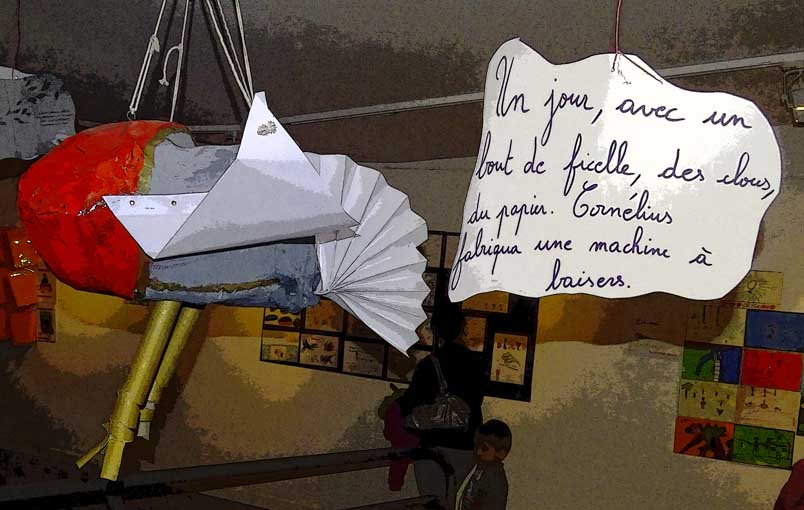 Un jour, avec un
bout de ficelle, des clous,
du papier. Cornélius
fabriqua une machine à
baisers.